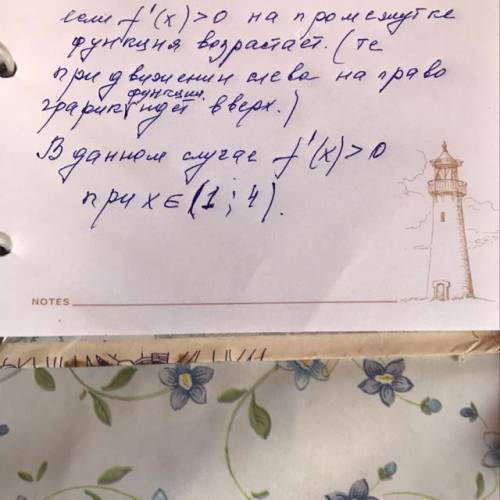 если f'(x)>0 на промежутке
функция возрастает. (те
при движении слева на право
график функции идёт вверх.)
В данном случае f'(x)>0
при x∈(1;4).
NOTES